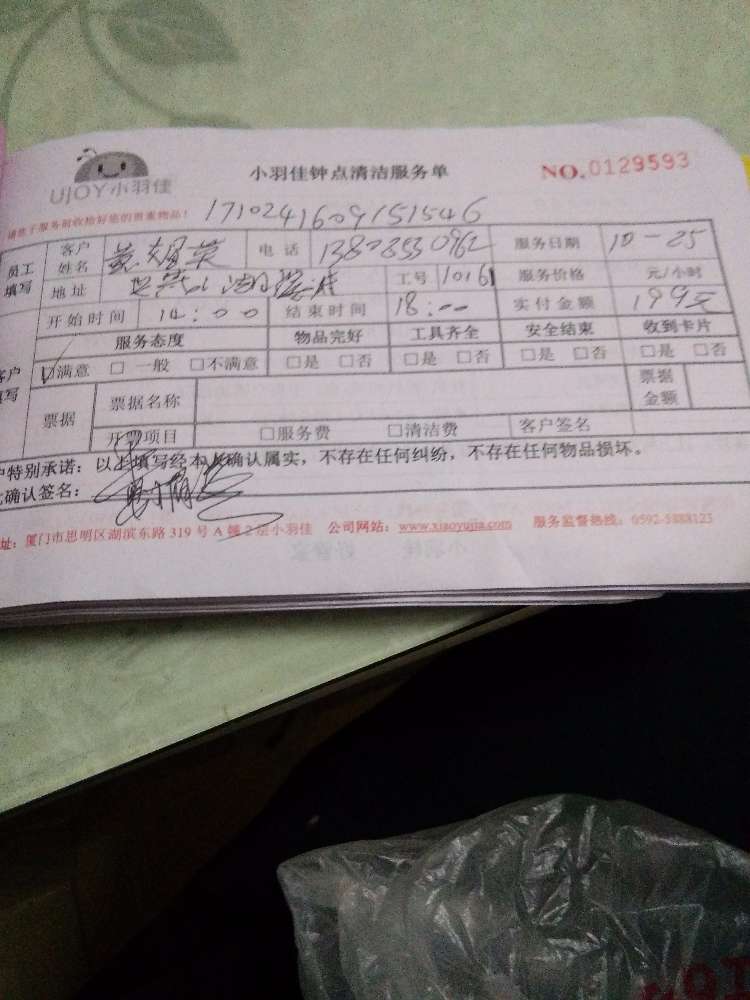 UJOY小羽佳 小羽佳钟点清洁服务单 NO.0129593
请您于服务前收拾好您的贵重物品！ 1710241609151546
员工填写 客户姓名 电话 13803550962 服务日期 10-25
地址 工号 10161 服务价格 元/小时
开始时间 14:00 结束时间 18:00 实付金额 199元
服务态度 物品完好 工具齐全 安全结束 收到卡片
☑满意 □一般 □不满意 □是 □否 □是 □否 □是 □否 □是 □否
票据 票据名称 票据金额
开票项目 □服务费 □清洁费 客户签名
户特别承诺：以上填写经本人确认属实，不存在任何纠纷，不存在任何物品损坏。
确认签名：
址：厦门市思明区湖滨东路 319 号 A 幢 2 层小羽佳 公司网站：www.xiaoyujia.com 服务监督热线：0592-5888125